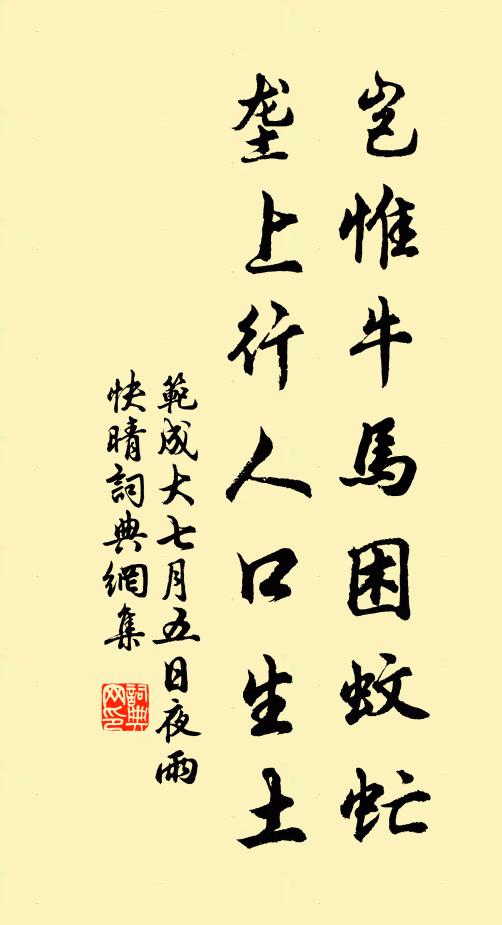 岂惟牛馬困蚊虻
垄上行人口生土
範成大七月五日夜雨
快晴詞典網集
詞典网印